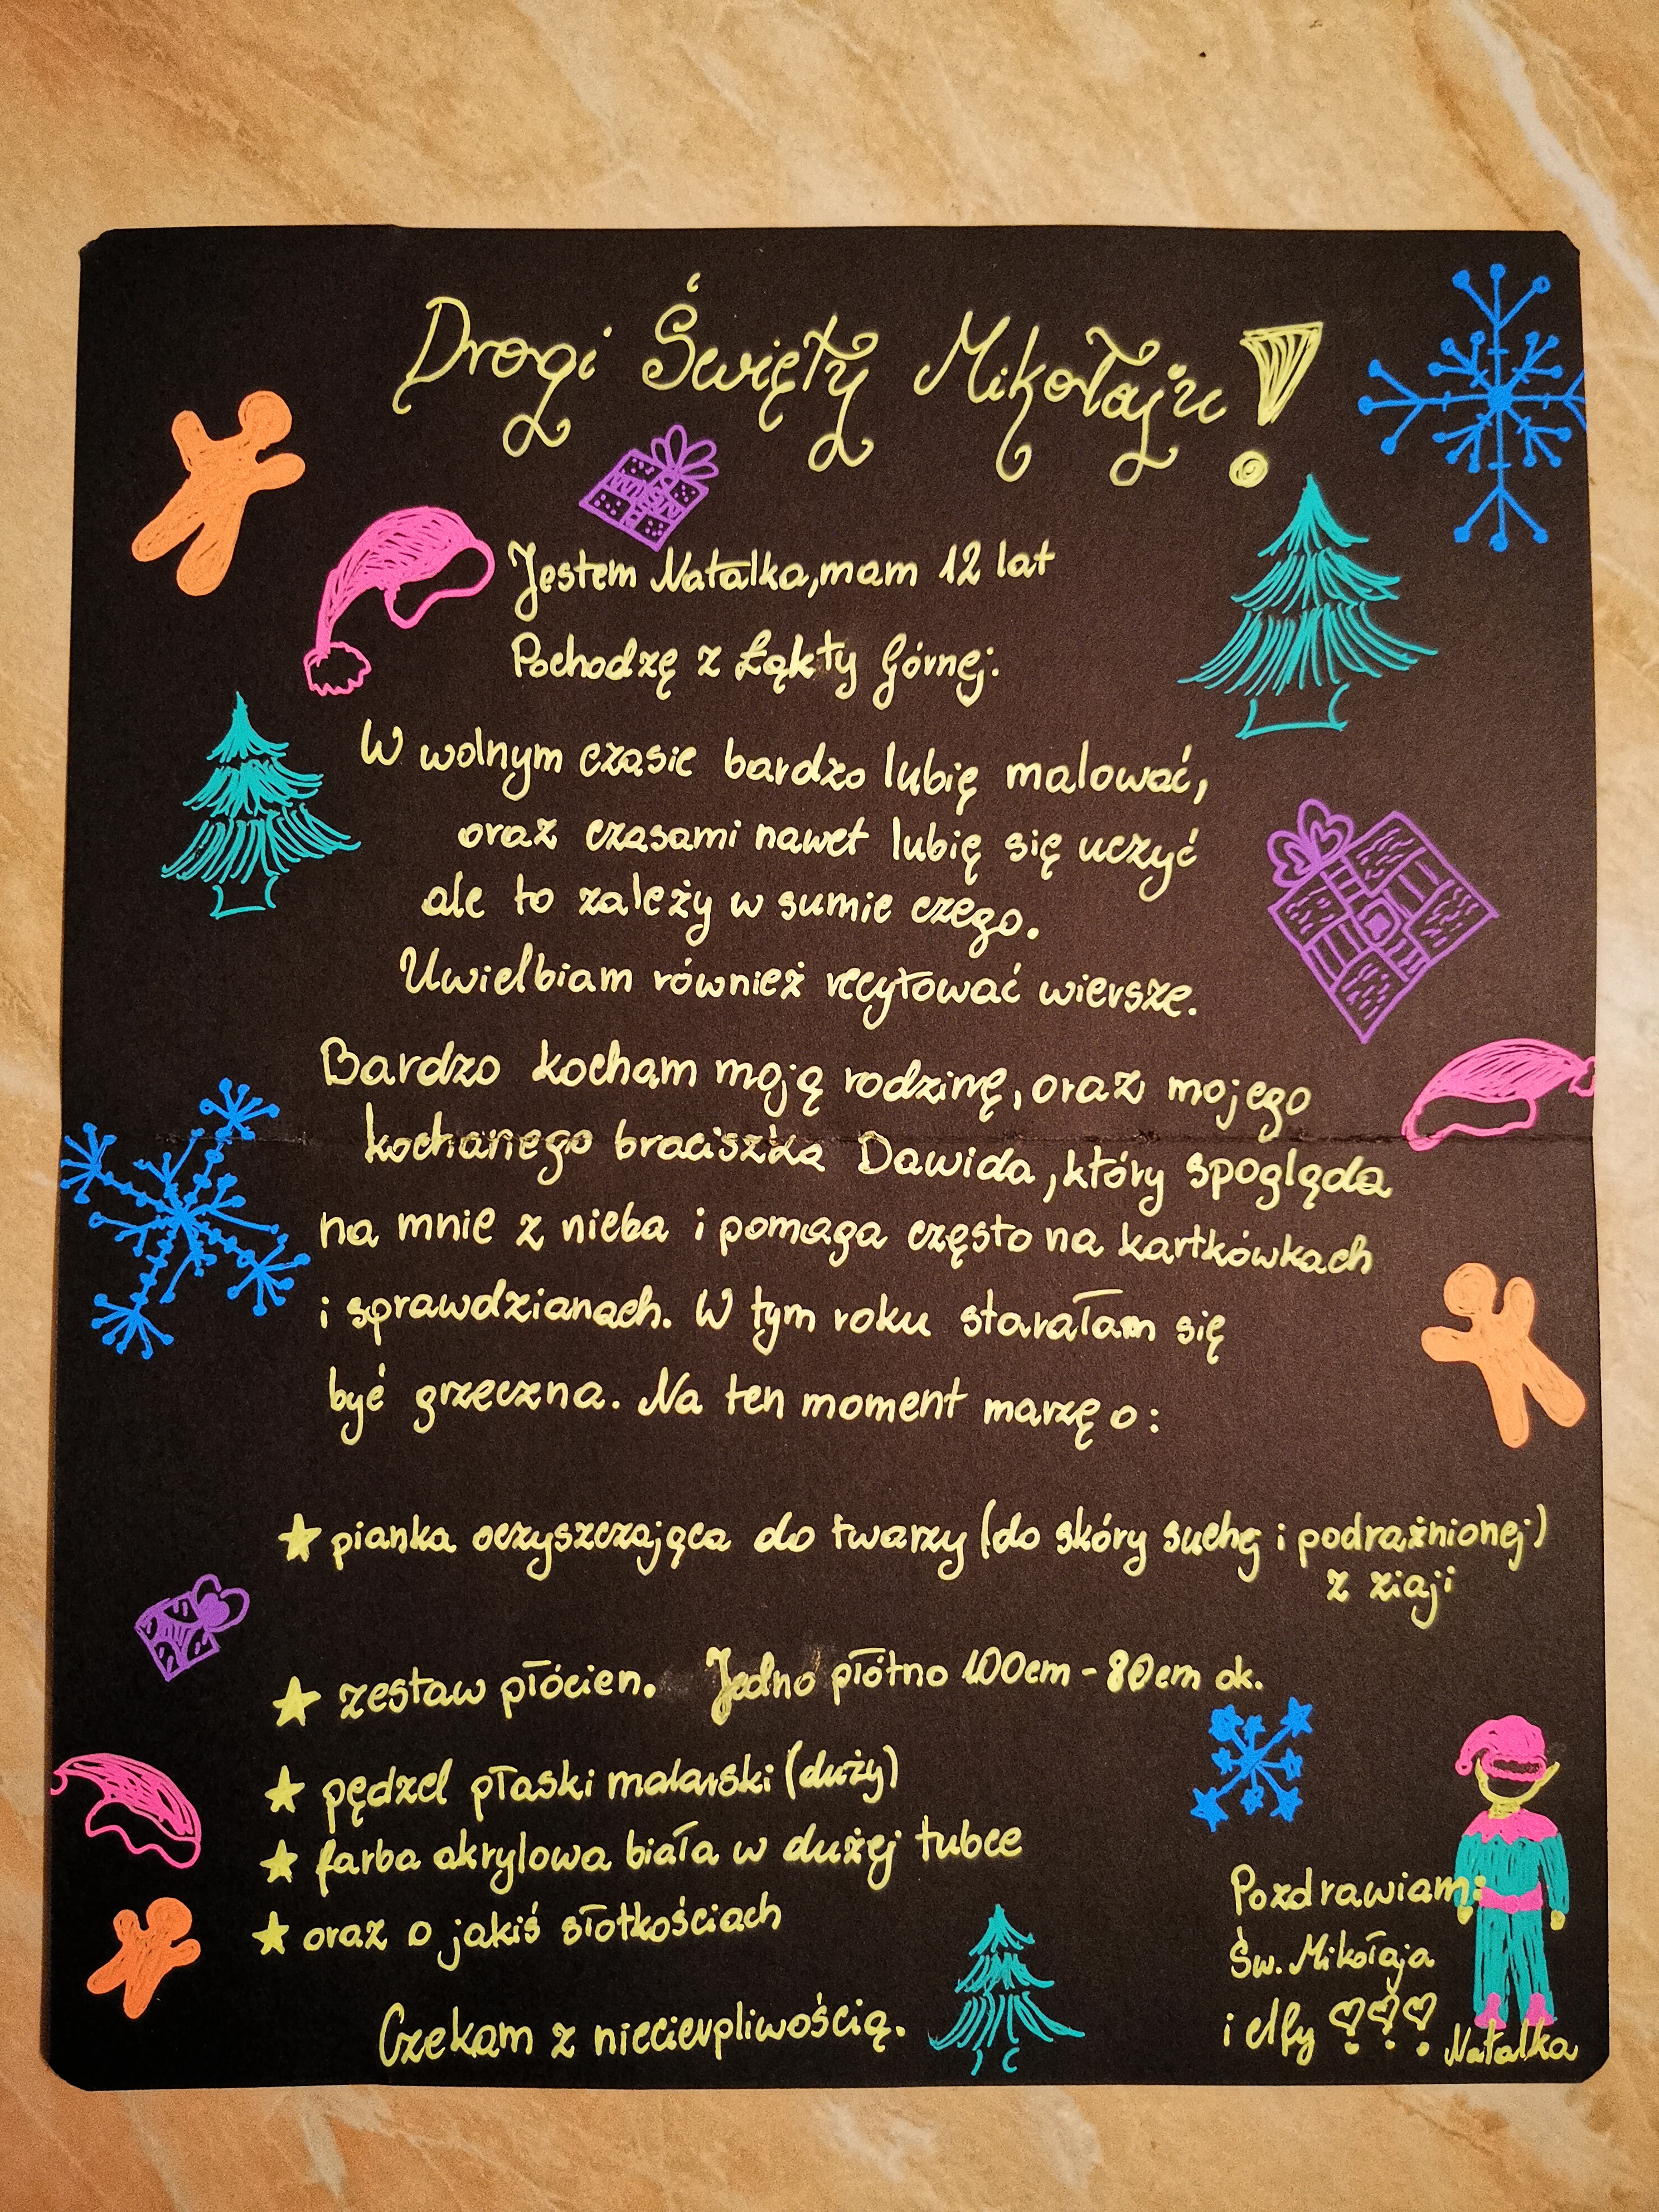 Drogi Święty Mikołaju!
Jestem Natalka, mam 12 lat
Pochodzę z Łąkty Górnej.
W wolnym czasie bardzo lubię malować,
oraz czasami nawet lubię się uczyć
ale to zależy w sumie czego.
Uwielbiam również recytować wiersze.
Bardzo kocham moją rodzinę, oraz mojego
kochanego braciszka Dawida, który spogląda
na mnie z nieba i pomaga często na kartkówkach
i sprawdzianach. W tym roku starałam się
być grzeczna. Na ten moment marzę o:
★ pianka oczyszczająca do twarzy (do skóry suchej i podrażnionej)
z ziaji
★ zestaw płócien. Jedno płótno 100cm - 80cm ok.
★ pędzel płaski malarski (duży)
★ farba akrylowa biała w dużej tubce
★ oraz o jakiś słotkościach
Czekam z niecierpliwością.
Pozdrawiam:
Św. Mikołaja
i elfy ♡♡♡
Natalka